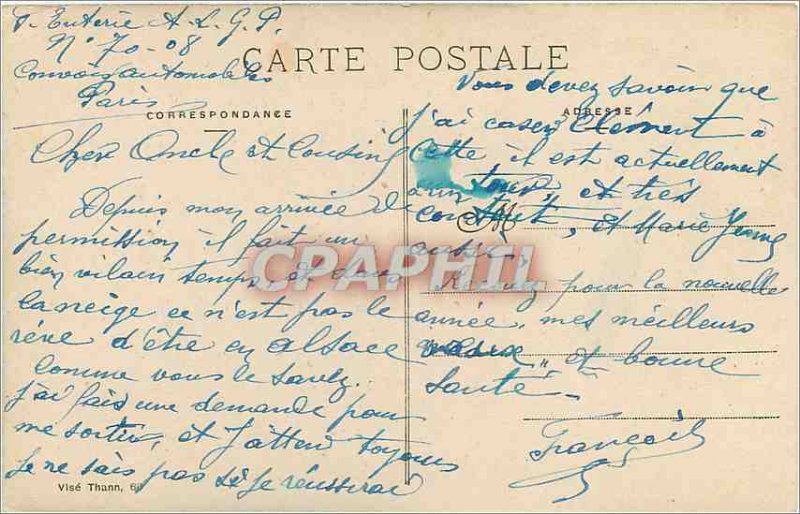 A.L.G.P.
N° 70-08
CARTE POSTALE
Convois automobiles
Paris
CORRESPONDANCE
Cher Oncle et Cousine
Depuis mon arrivée de
permission il fait un
bien vilain temps, et dans
la neige ce n'est pas le
rêve d'être en alsace
comme vous le savez.
J'ai fais une demande pour
me sortir, et J'atten toujours
Je ne sais pas si Je réussirai
Visé Thann, 60
Vous devez savoir que
ADRESSE
j'ai caser Clément à
Cette il est actuellement
et très
content, et Marie Jeanne
aussi.
Recevez pour la nouvelle
année, mes meilleurs
vœux, et bonne
Santé.
François
CPAPHIL